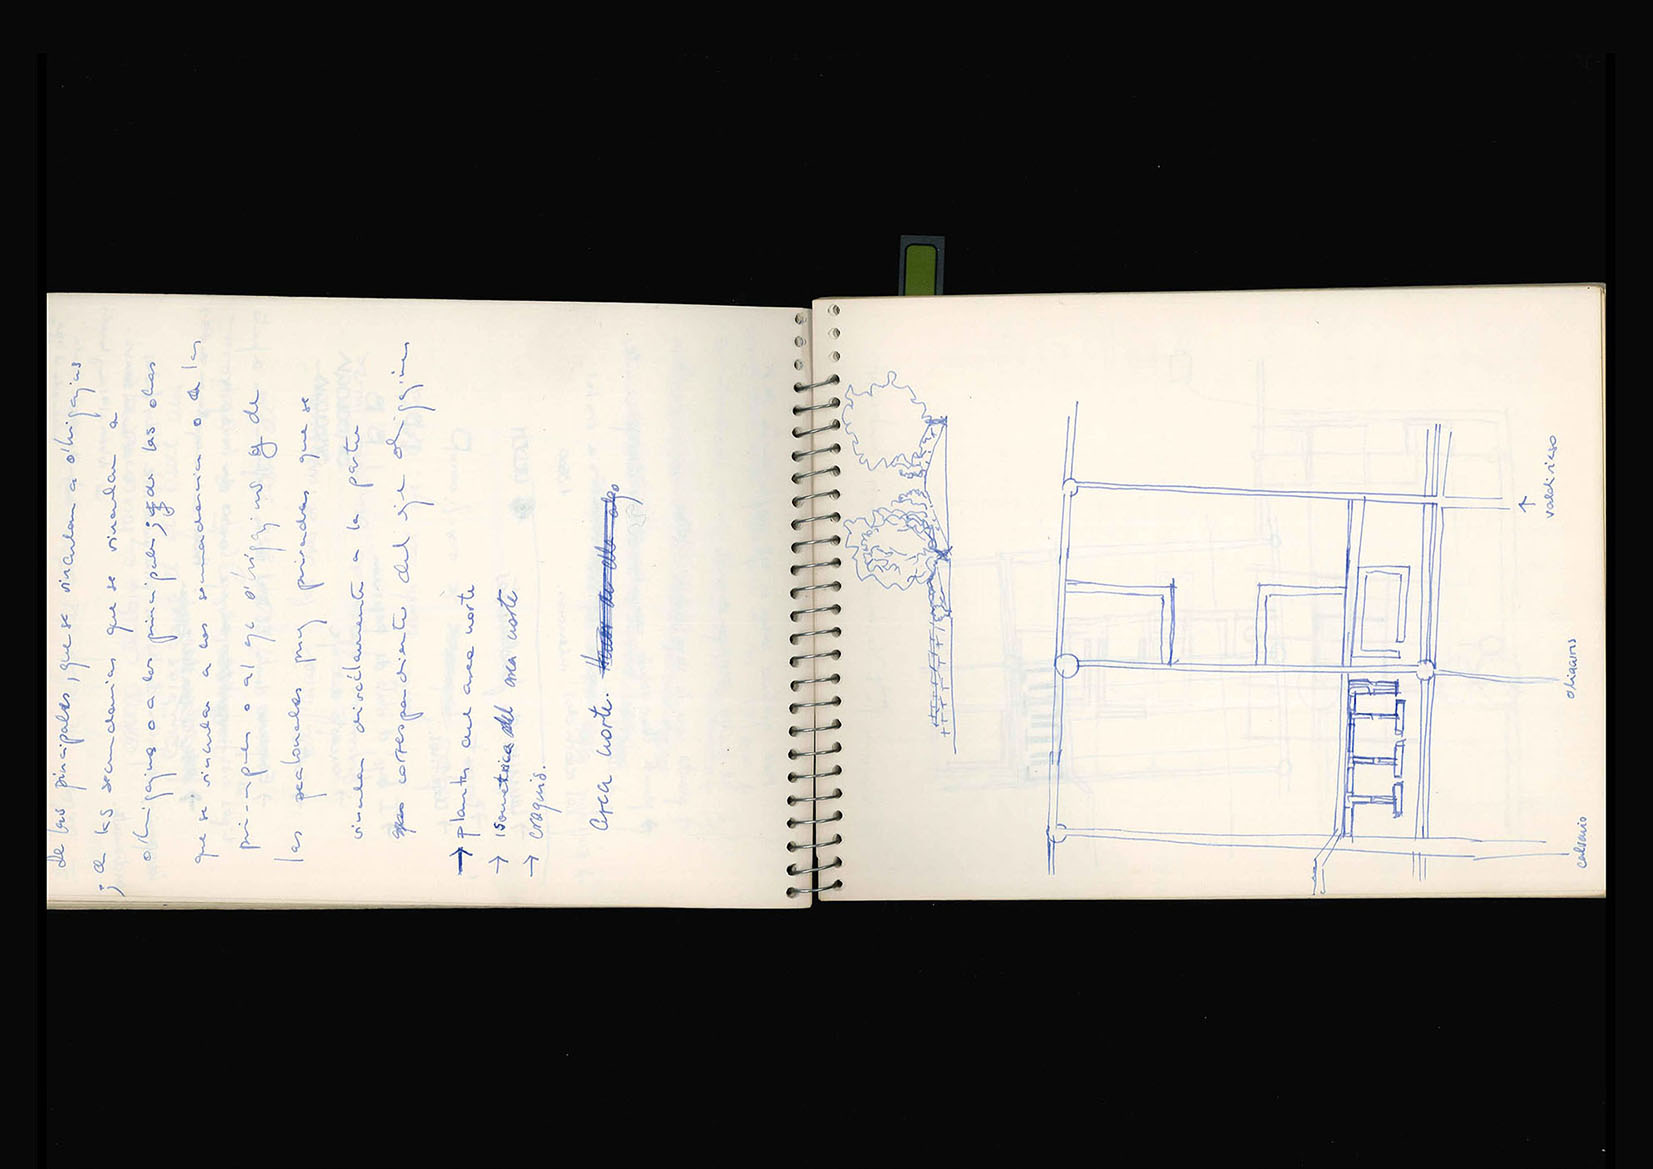 de las principales, que se vinculan a o'higgins
, a las secundarias que se vinculan a
o'higgins o a las principales; y de las otras
que se vinculan a las secundarias o a las
principales o al eje o'higgins y de
las peatonales y privadas que se
vinculan directamente a la parte
correspondiente del eje ohiggins
→ planta del area norte
→ isometrica del area norte
→ croquis.
Area norte.
↑
valdivieso
ohiggins